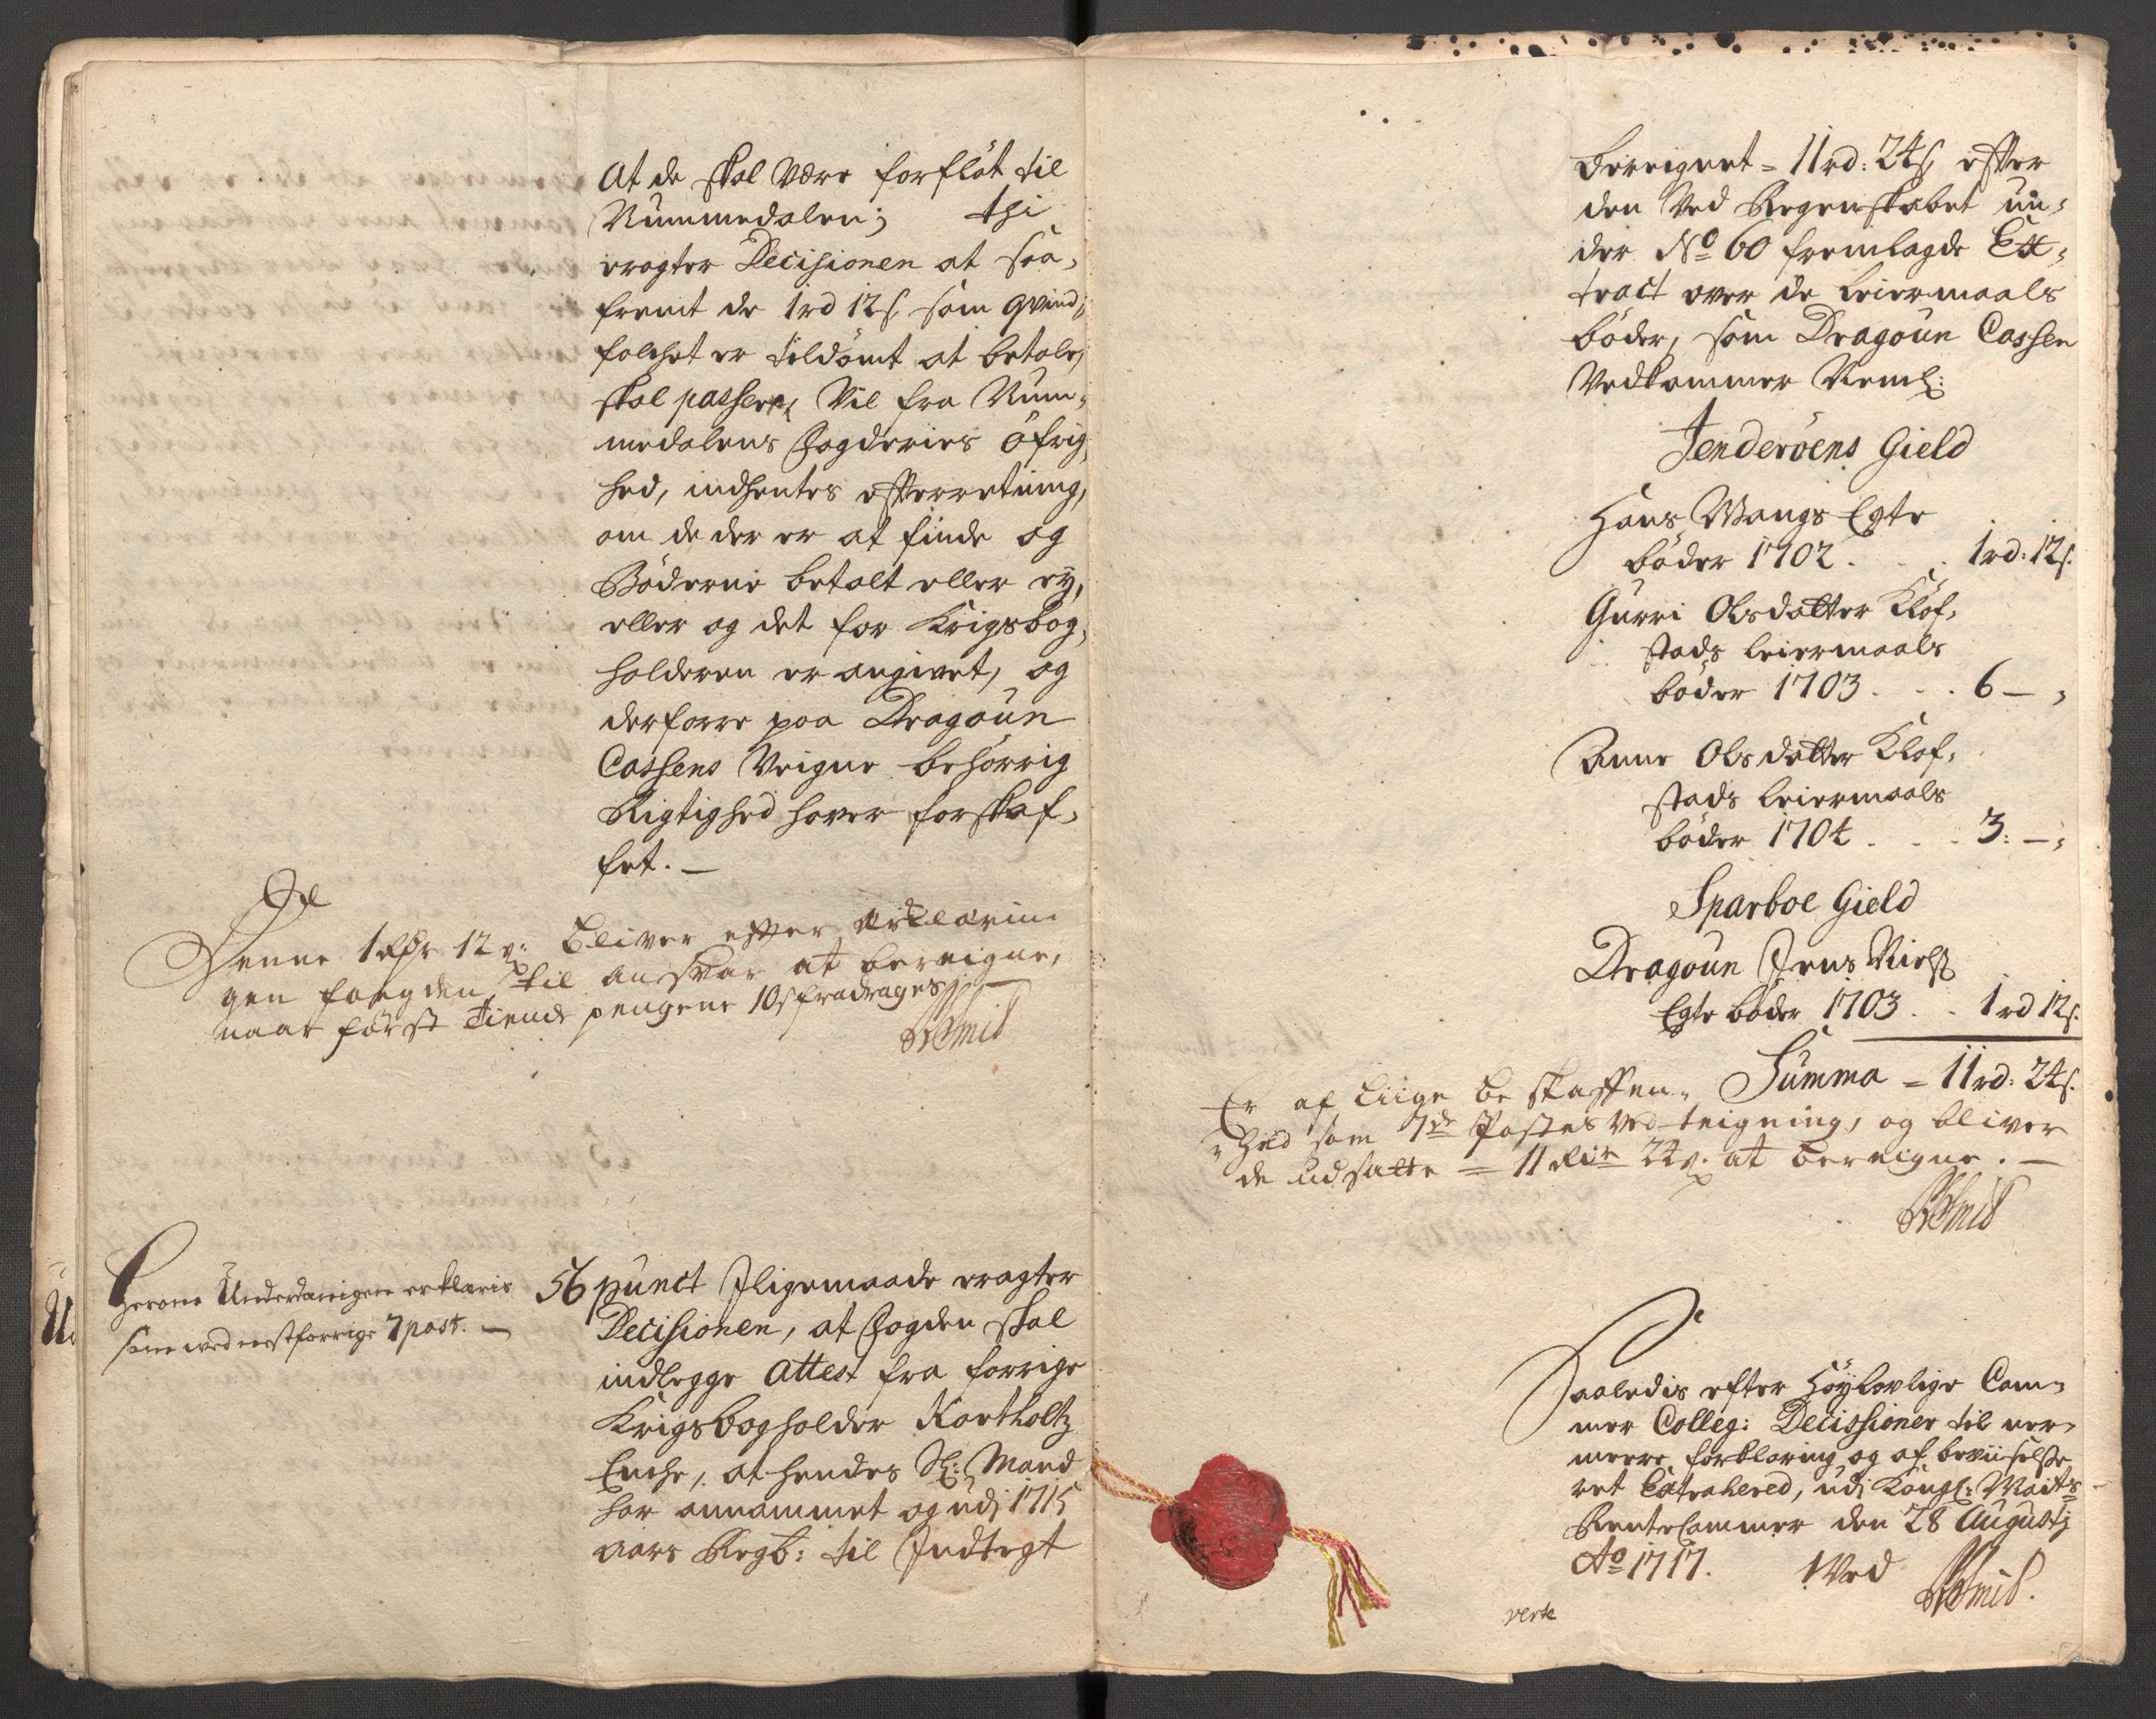 At de skal være forfløt til
Nummedalen; thi
eragter Decisionen at saa,
fremt de 1rd 12s som qvind,
folchet er tildømt at betale,
skal passere, Vil fra Num,
medalens Fogderies øfrig,
hed, indhentes efterretning,
om de der er at finde og
Bøderne betalt eller ey,
eller og det for Krigsbog,
holderen er angivet, og
derforre paa Dragoun
Cassens Veigne behørrig
Rigtighed haver forskaf,
fet. —
Denne 1 Rdr 12 s: bliver efter Erklærin
gen fogden til ansvar at bereigne,
naar først Tiende pengene 10s fradrages. —
Herom Underdanigen erklæris
som ved nestforrige 7 post. —
56 punct Iligemaade eragter
Decisionen, at Fogden skal
indlegge Attest fra forrige
Krigsbogholder Kortholtz
Enche, at hendes Sl: Mand
har annammet og udj 1715
aars Regb: til Indtegt
bereignet = 11rd: 24s, efter
den Ved Regenskabet un,
der No 60 fremlagde Ex,
tract over de leiermaals
bøder, som Dragoun Cassen
Vedkommer Neml:
Jenderøens Gield
Hans Wangs Egte
bøder 1702 . . . 1rd: 12s.
Gurri Olsdatter Klof,
stads leiermaals
bøder 1703 . . . 6 — ,
Anne Olsdatter Klof,
stads leiermaals
bøder 1704 . . . 3: — ,
Sparboe Gield
Dragoun Jens Nielss
Egte bøder 1703 . . 1rd 12s.
Summa = 11rd: 24s.
Er af liige beskaffen,
hed som 7de Postes Ved teigning, og bliver
de udsatte = 11 Rdr 24 s. at bereigne. —
Saaledis efter Høylovlige Cam,
mer Colleg: Decissioner til ner,
mere forklaring og af beviiselste
ret Extrahered, udj Kongl: Maits
RenteCammer den 28 Augustj
Ao 1717. Wed
verte